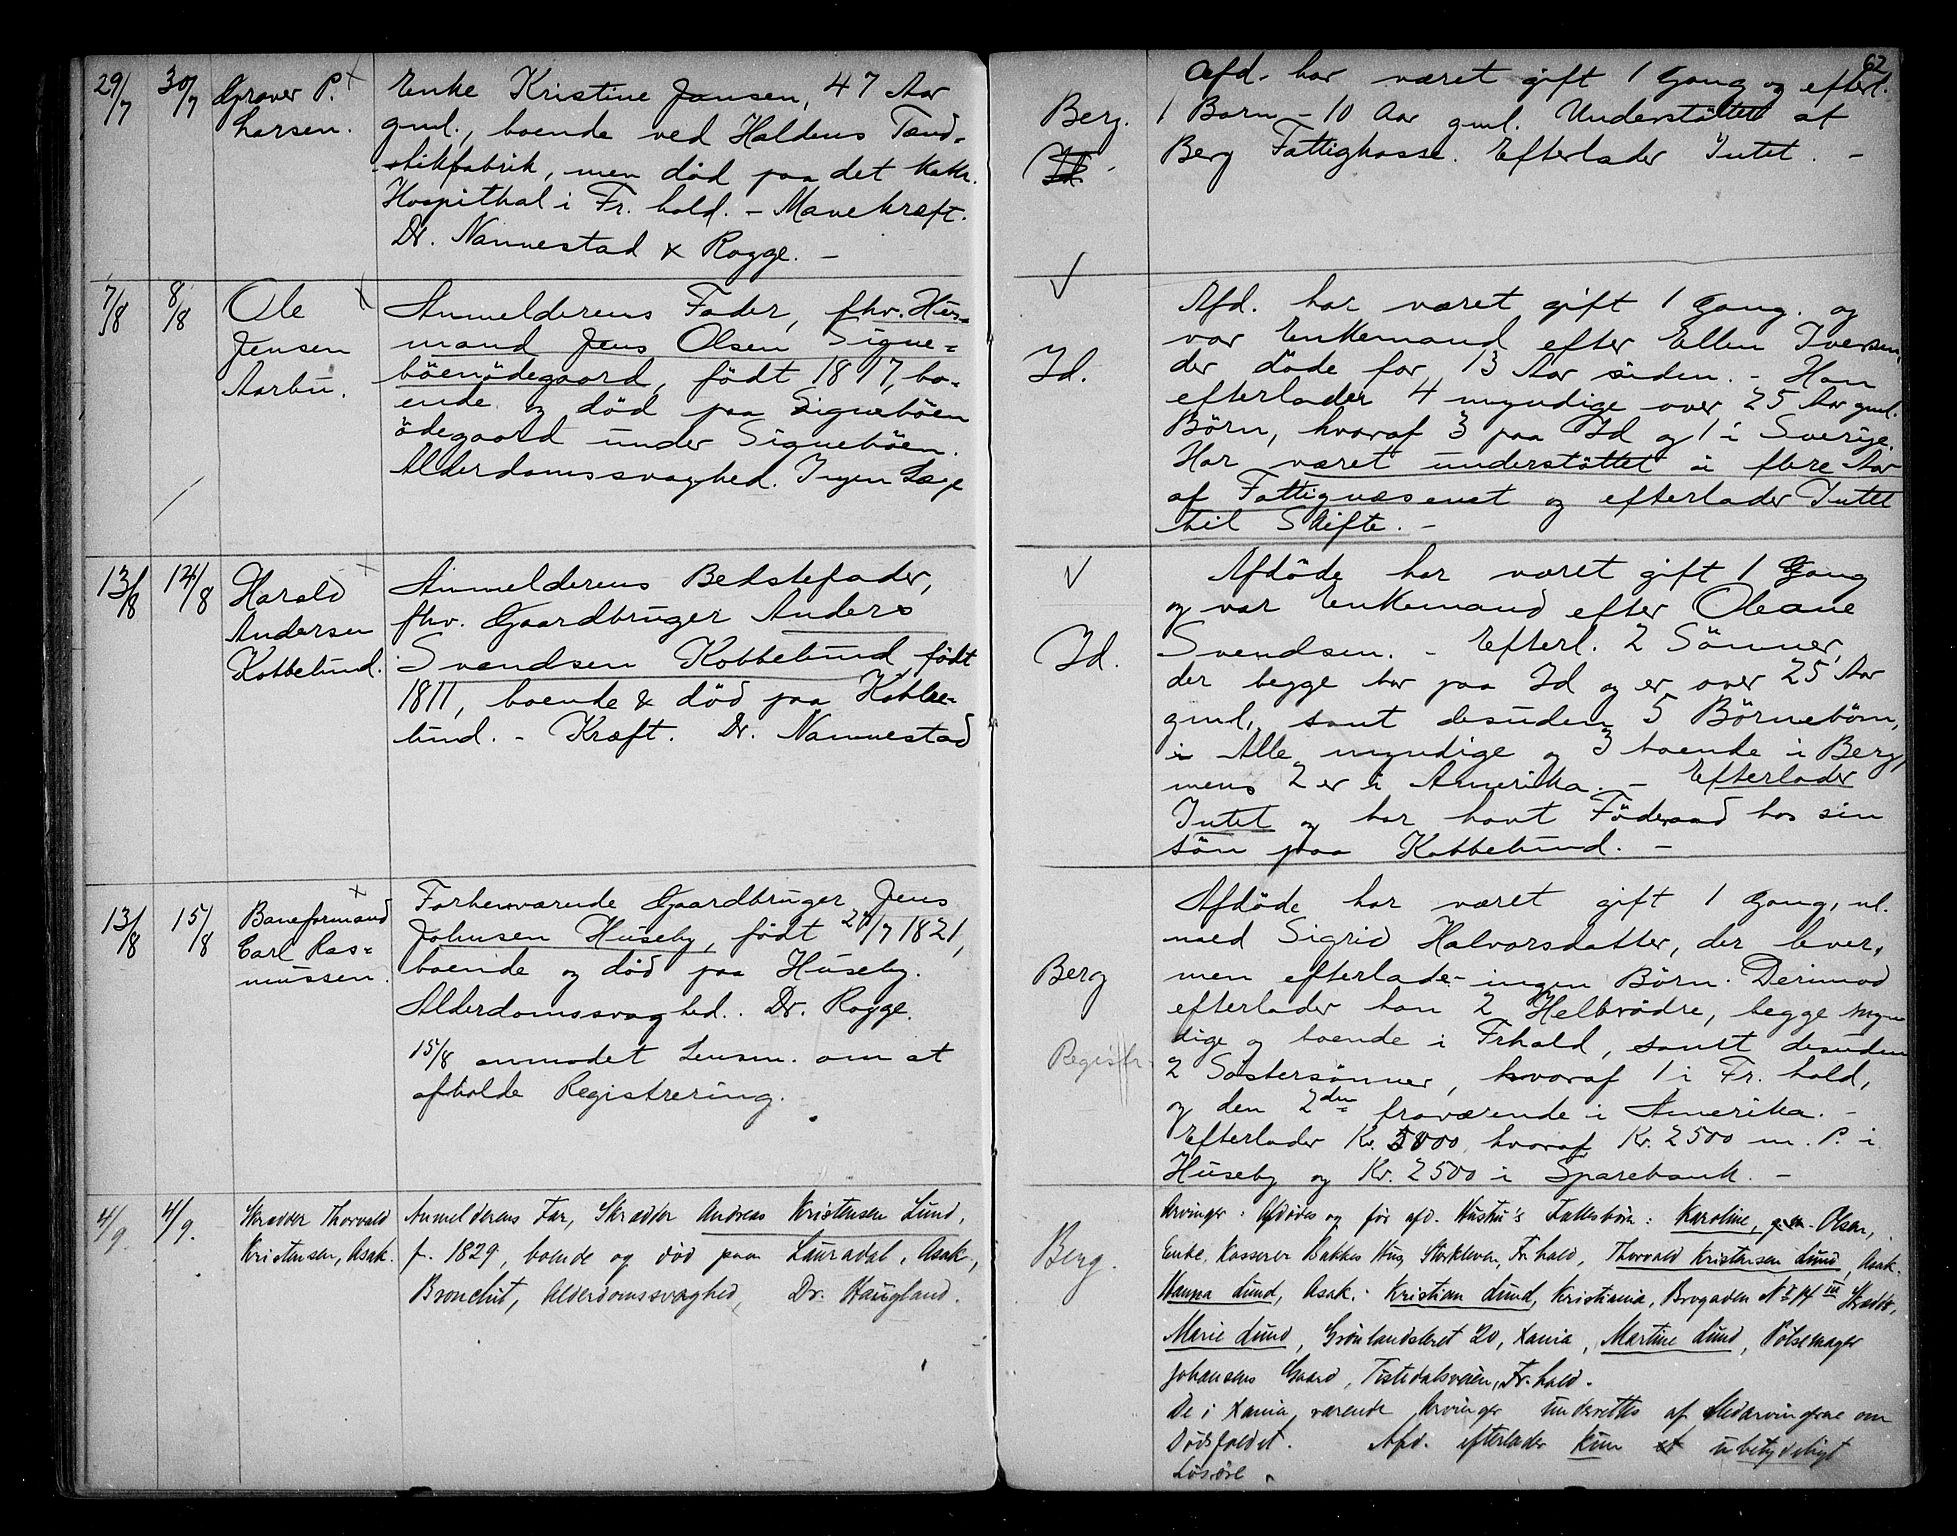 62
29/7 30/7 Graver P. Larsen.
Enke Kristine Jansen, 47 Aar
gml., boende ved Haldens Tænd-
stikfabrik, men död paa det kath.
Hospithal i Fr. hald. - Mavekræft.
Dr. Nannestad & Rogge. -
Berg.
Id.
Afd. har været gift 1 Gang og efterl.
1 Barn - 10 Aar gml. Understöttet af
Berg Fattigkasse. Efterlader Intet. -
7/8 8/8 Ole
Jensen
Aarbu.
Anmelderens Fader, fhv. Hus-
mand Jens Olsen Signe-
böenödegaard, födt 1817, bo-
ende og död paa Signeböen
ödegaard under Signeböen.
Alderdomssvaghed. Ingen Læge
Id.
Afd. har været gift 1 Gang. og
var Enkemand efter Ellen Iversen,
der döde for 13 Aar siden. - Han
efterlader 4 myndige over 25 Aar gml.
Börn, hvoraf 3 paa Id og 1 i Sverige.
Har været understöttet i flere Aar
af Fattigvæsenet og efterlader Intet
til Skifte. -
13/8 14/8 Harald
Andersen
Kobbelund.
Anmelderens Bedstefader,
fhv. Gaardbruger Anders
Svendsen Kobbelund, födt
1811, boende & död paa Kobbe-
lund. - Kræft. Dr. Nannestad
Id.
Afdöde har været gift 1 Gang
og var Enkemand efter Oleane
Svendsen. - Efterl. 2 Sönner,
der begge bor paa Id og er over 25 Aar
gml., samt desuden 5 Börnebörn,
Alle myndige og 3 boende i Berg,
mens 2 er i Amerika. - Efterlader
Intet og har havt Föderaad hos sin
sön paa Kobbelund. -
13/8 15/8 Baneformand
Carl Ras-
mussen.
Forhenværende Gaardbruger Jens
Johnsen Huseby, födt 24/7 1821,
boende og död paa Huseby.
Alderdomssvaghed. Dr. Rogge.
15/8 anmodet Lensm. om at
afholde Registrering.
Berg
Registr.
Afdöde har været gift 1 Gang, nl.
med Sigrid Halvorsdatter, der lever,
men efterlader ingen Börn. Derimod
efterlader han 2 Helbrödre, begge myn
dige og boende i Frhald, samt desuden
2 Söstersönner, hvoraf 1 i Fr. hald,
og den 2den fraværende i Amerika. -
Efterlader Kr. 5000, hvoraf Kr. 2500 m. P. i
Huseby og Kr. 2500 i Sparebank. -
4/9. 4/9. Skrædder Thorvald
Kristensen, Asak.
Anmelderens Far, Skrædder Andreas Kristensen Lund,
f. 1829, boende og död paa Lauradal, Asak,
Bronchit, Alderdomssvaghed, Dr. Haugland.
Berg.
Arvinger: Afdödes og för afd. Hustru's Fællesbörn: Karoline, g.m. Olsen,
Enke, Kasserer Bakkes Hus, Fr. hald, Thorvald Kristensen Lund, Asak.
Hanna Lund, Asak. - Kristian Lund, Kristiania, Brogaden No 14 III Skrædder,
Marie Lund, Grönlandsleret 20, Xania, Martine Lund, Pölsemager
Johansens Gaard, Tistedalsveien, Fr. hald.
De i Xania værende Arvinger underrettes af Medarvingerne om
Dödsfaldet. Afd. efterlader kun et ubetydeligt
Lösöre.